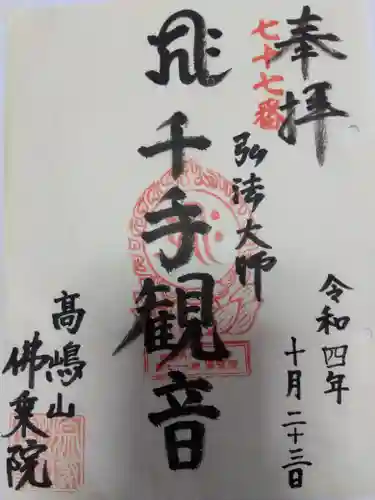 奉拝
七十七番
令和四年
十月二十三日
弘法大師
千手観音
高嶋山
佛乗院